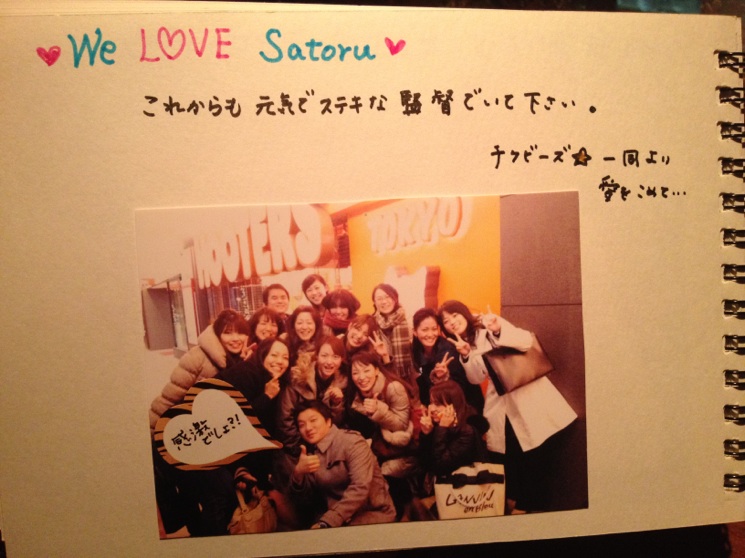 We LOVE Satoru
これからも 元気でステキな 監督でいて下さい。
チクビーズ★一同より
愛をこめて…
HOOTERS
TOKYO
感激
でしょ?!